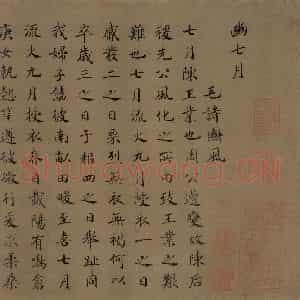 豳七月
毛詩豳風
七月陳王業也周公遭變故陳后
稷先公風化之所由致王業之艱
難也七月流火九月授衣一之日
觱發二之日栗烈無衣無褐何以
卒歲三之日于耜四之日舉趾同
我婦子饁彼南畝田畯至喜七月
流火九月授衣春日載陽有鳴倉
庚女執懿筐遵彼微行爰求柔桑
Shufawang.CN